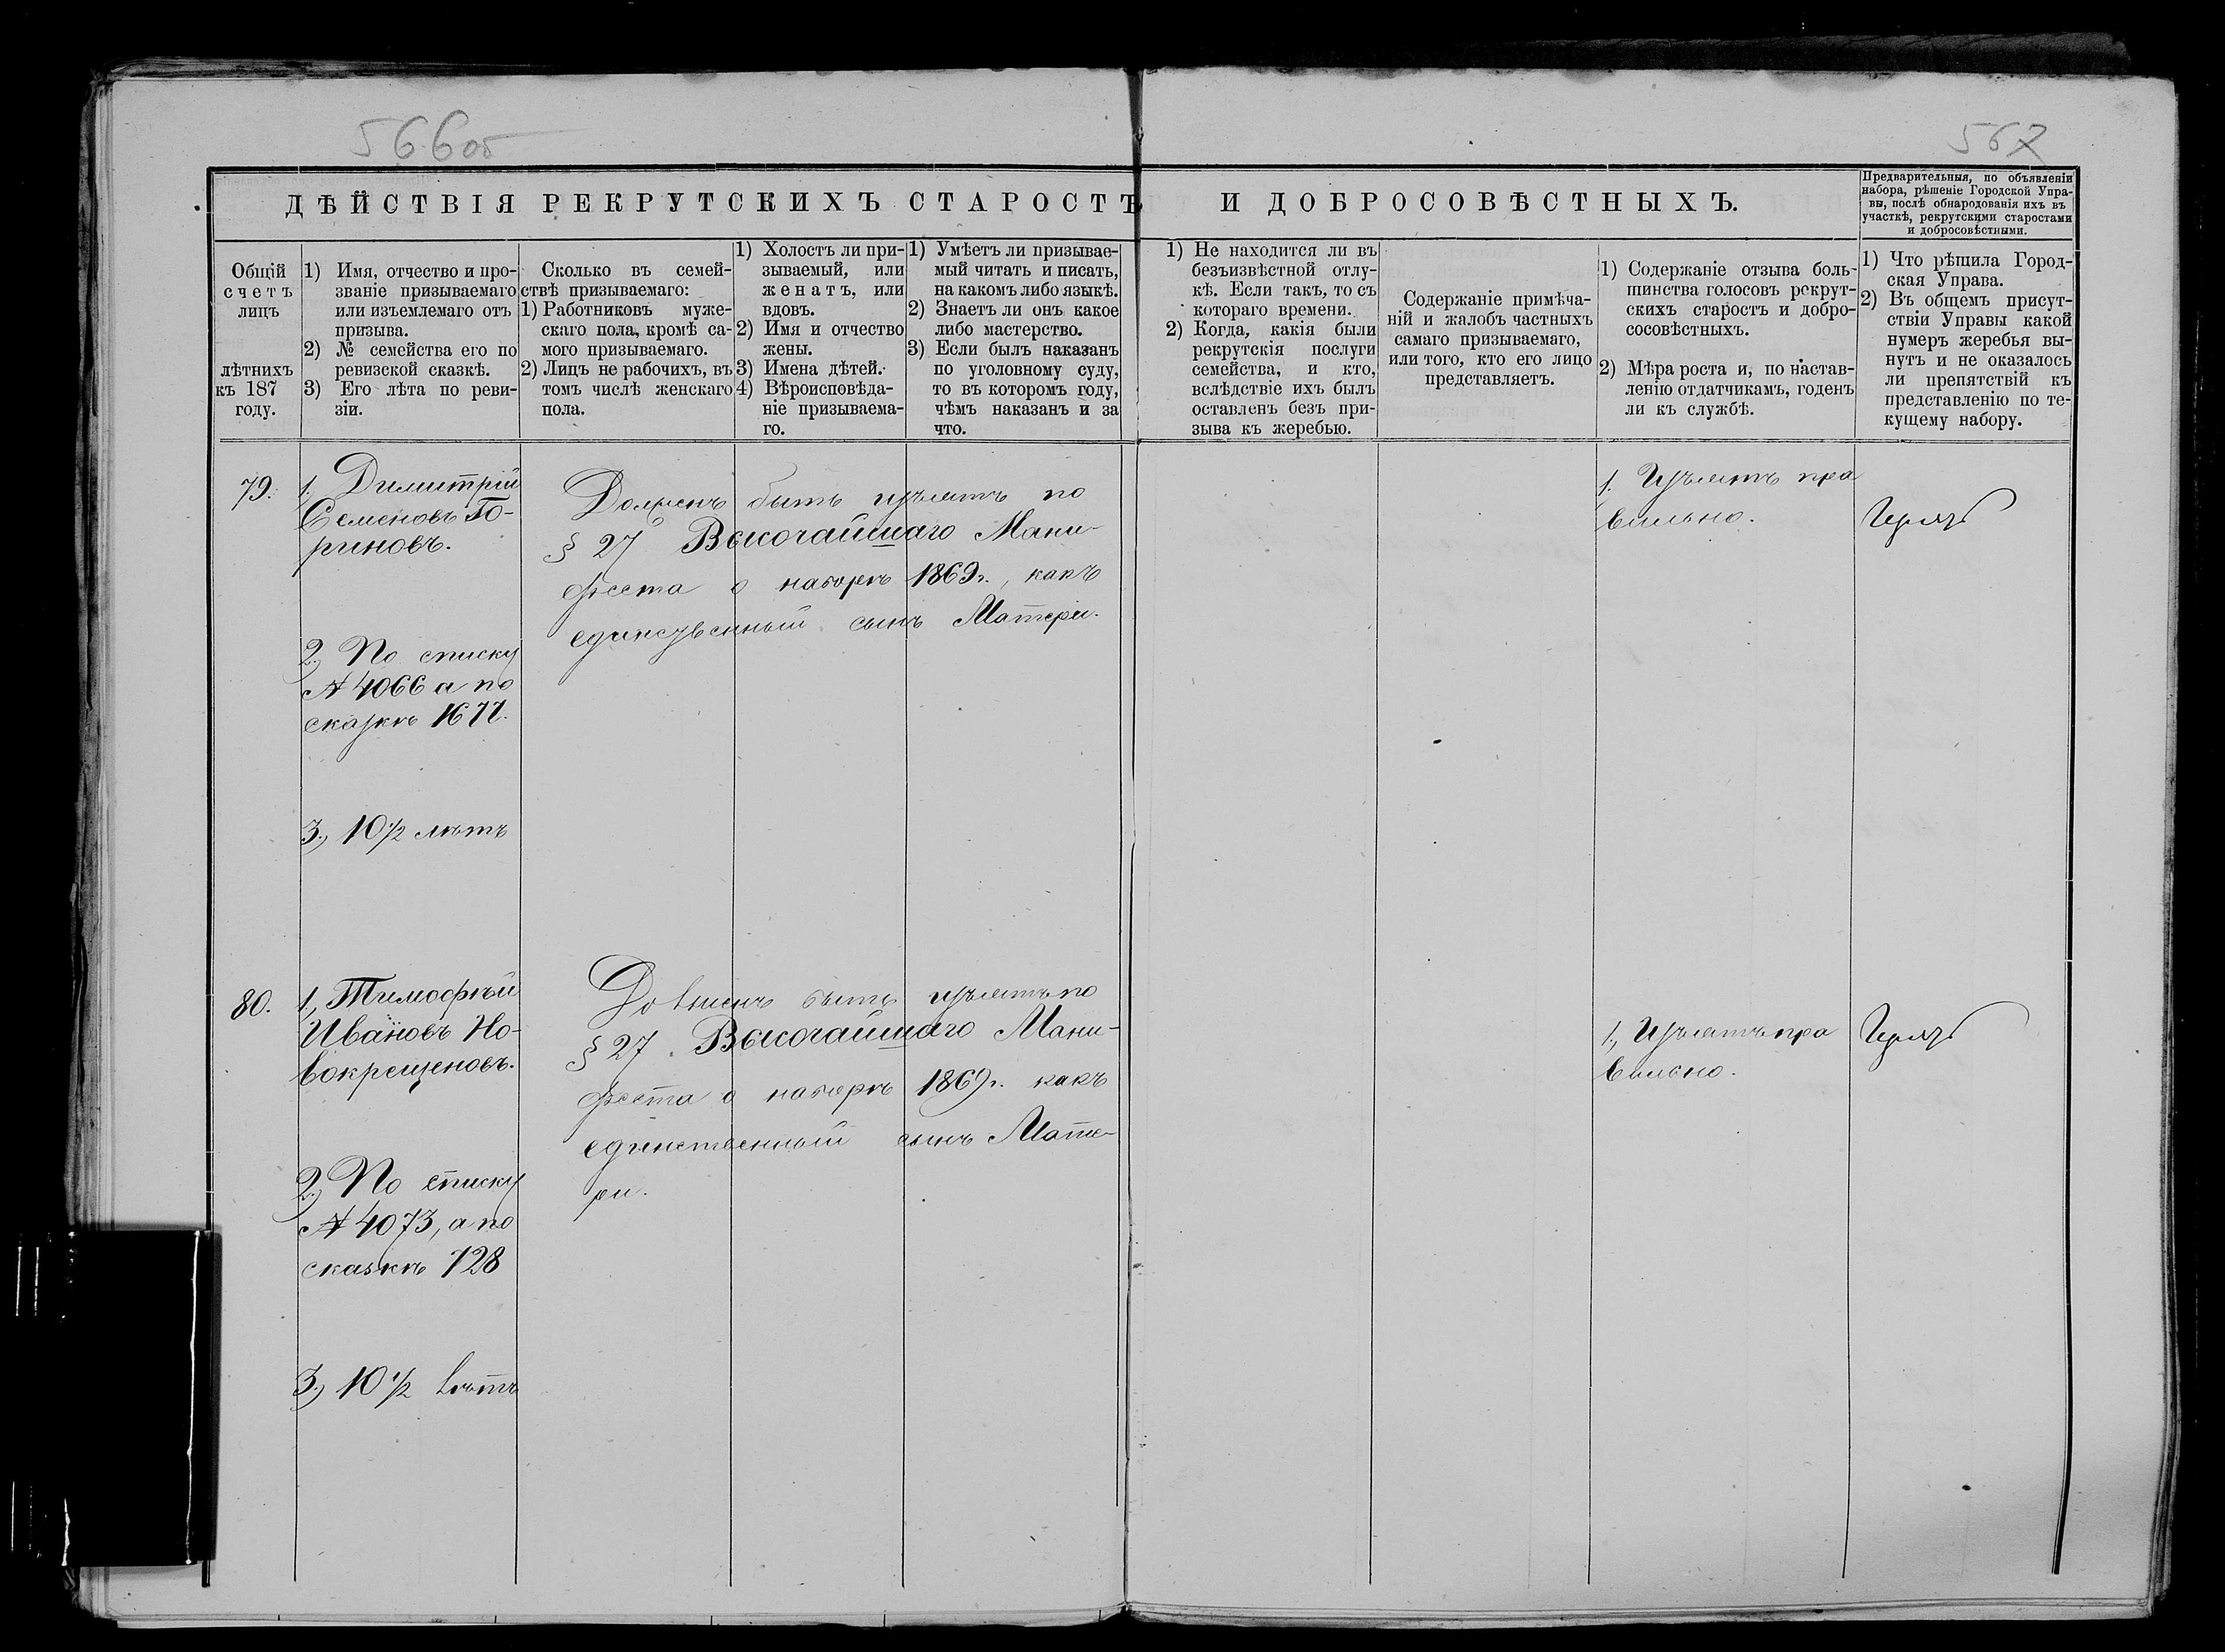 566об
567
ДѢЙСТВІЯ РЕКРУТСКИХЪ СТАРОСТЪ И ДОБРОСОВѢСТНЫХЪ.
Предварительныя, по объявленіи
набора, рѣшеніе Городской Упра-
вы, послѣ обнародованія ихъ въ
участкѣ, рекрутскими старостами
и добросовѣстными.
Общій
счетъ
лицъ
лѣтнихъ
къ 187
году.
1) Имя, отчество и про-
званіе призываемаго
или изъемлемаго отъ
призыва.
2) № семейства его по
ревизской сказкѣ.
3) Его лѣта по реви-
зіи.
Сколько въ семей-
ствѣ призываемаго:
1) Работниковъ муже-
скаго пола, кромѣ са-
мого призываемаго.
2) Лицъ не рабочихъ, въ
томъ числѣ женскаго
пола.
1) Холостъ ли при-
зываемый, или
женатъ, или
вдовъ.
2) Имя и отчество
жены.
3) Имена дѣтей.
4) Вѣроисповѣда-
ніе призываема-
го.
1) Умѣетъ ли призывае-
мый читать и писать,
на какомъ либо языкѣ.
2) Знаетъ ли онъ какое
либо мастерство.
3) Если былъ наказанъ
по уголовному суду,
то въ которомъ году,
чѣмъ наказанъ и за
что.
1) Не находится ли въ
безъизвѣстной отлу-
кѣ. Если такъ, то съ
котораго времени.
2) Когда, какія были
рекрутскія послуги
семейства, и кто,
вслѣдствіе ихъ былъ
оставленъ безъ при-
зыва къ жеребью.
Содержаніе примѣча-
ній и жалобъ частныхъ
самаго призываемаго,
или того, кто его лицо
представляетъ.
1) Содержаніе отзыва боль-
шинства голосовъ рекрут-
скихъ старостъ и добро-
сосовѣстныхъ.
2) Мѣра роста и, по настав-
ленію отдатчикамъ, годенъ
ли къ службѣ.
1) Что рѣшила Город-
ская Управа.
2) Въ общемъ присут-
ствіи Управы какой
нумеръ жеребья вы-
нутъ и не оказалось
ли препятствій къ
представленію по те-
кущему набору.
79.
1. Димитрій
Семеновъ Го-
риновъ.
2.) По списку
№ 4066 а по
сказкѣ 1677.
3.) 10 1/2 лѣтъ
Долженъ быть изъятъ по
§ 27 Высочайшаго Мани-
феста о наборѣ 1869г., какъ
единственный сынъ Матери.
1. Изъятъ пра
вильно.
80.
1., Тимофѣй
Ивановъ Но-
вокрещеновъ.
2.) По списку
№ 4073, а по
сказкѣ 728
3.) 10 1/2 лѣтъ
Долженъ быть изъятъ по
§ 27. Высочайшаго Мани-
феста о наборѣ 1869г. какъ
единственный сынъ Мате-
ри.
1., Изъятъ пра
вильно.